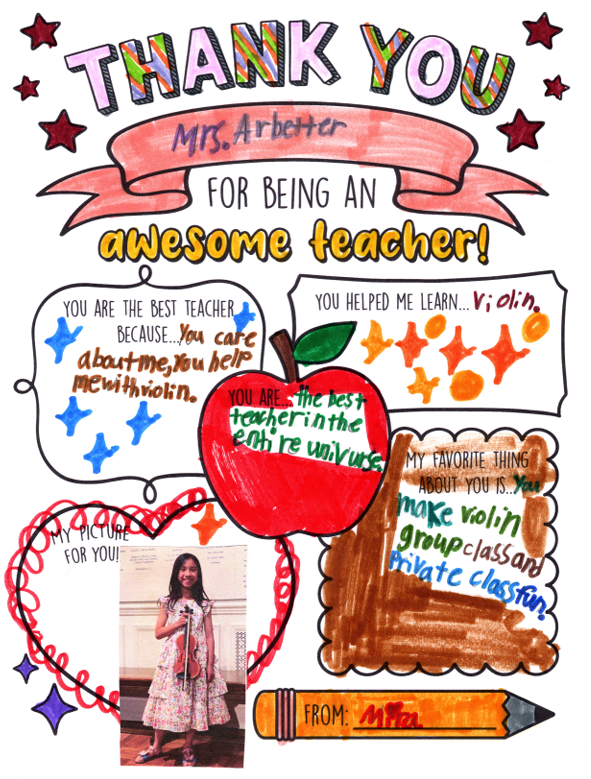 THANK YOU
Mrs. Arbetter
FOR BEING AN
awesome teacher!
YOU ARE THE BEST TEACHER
BECAUSE...You care
about me, You help
me with violin.
YOU HELPED ME LEARN... violin.
YOU ARE... the best
teacher in the
entire universe.
MY FAVORITE THING
ABOUT YOU IS...You
make violin
group class and
Private class fun.
MY PICTURE
FOR YOU!
FROM: Mira